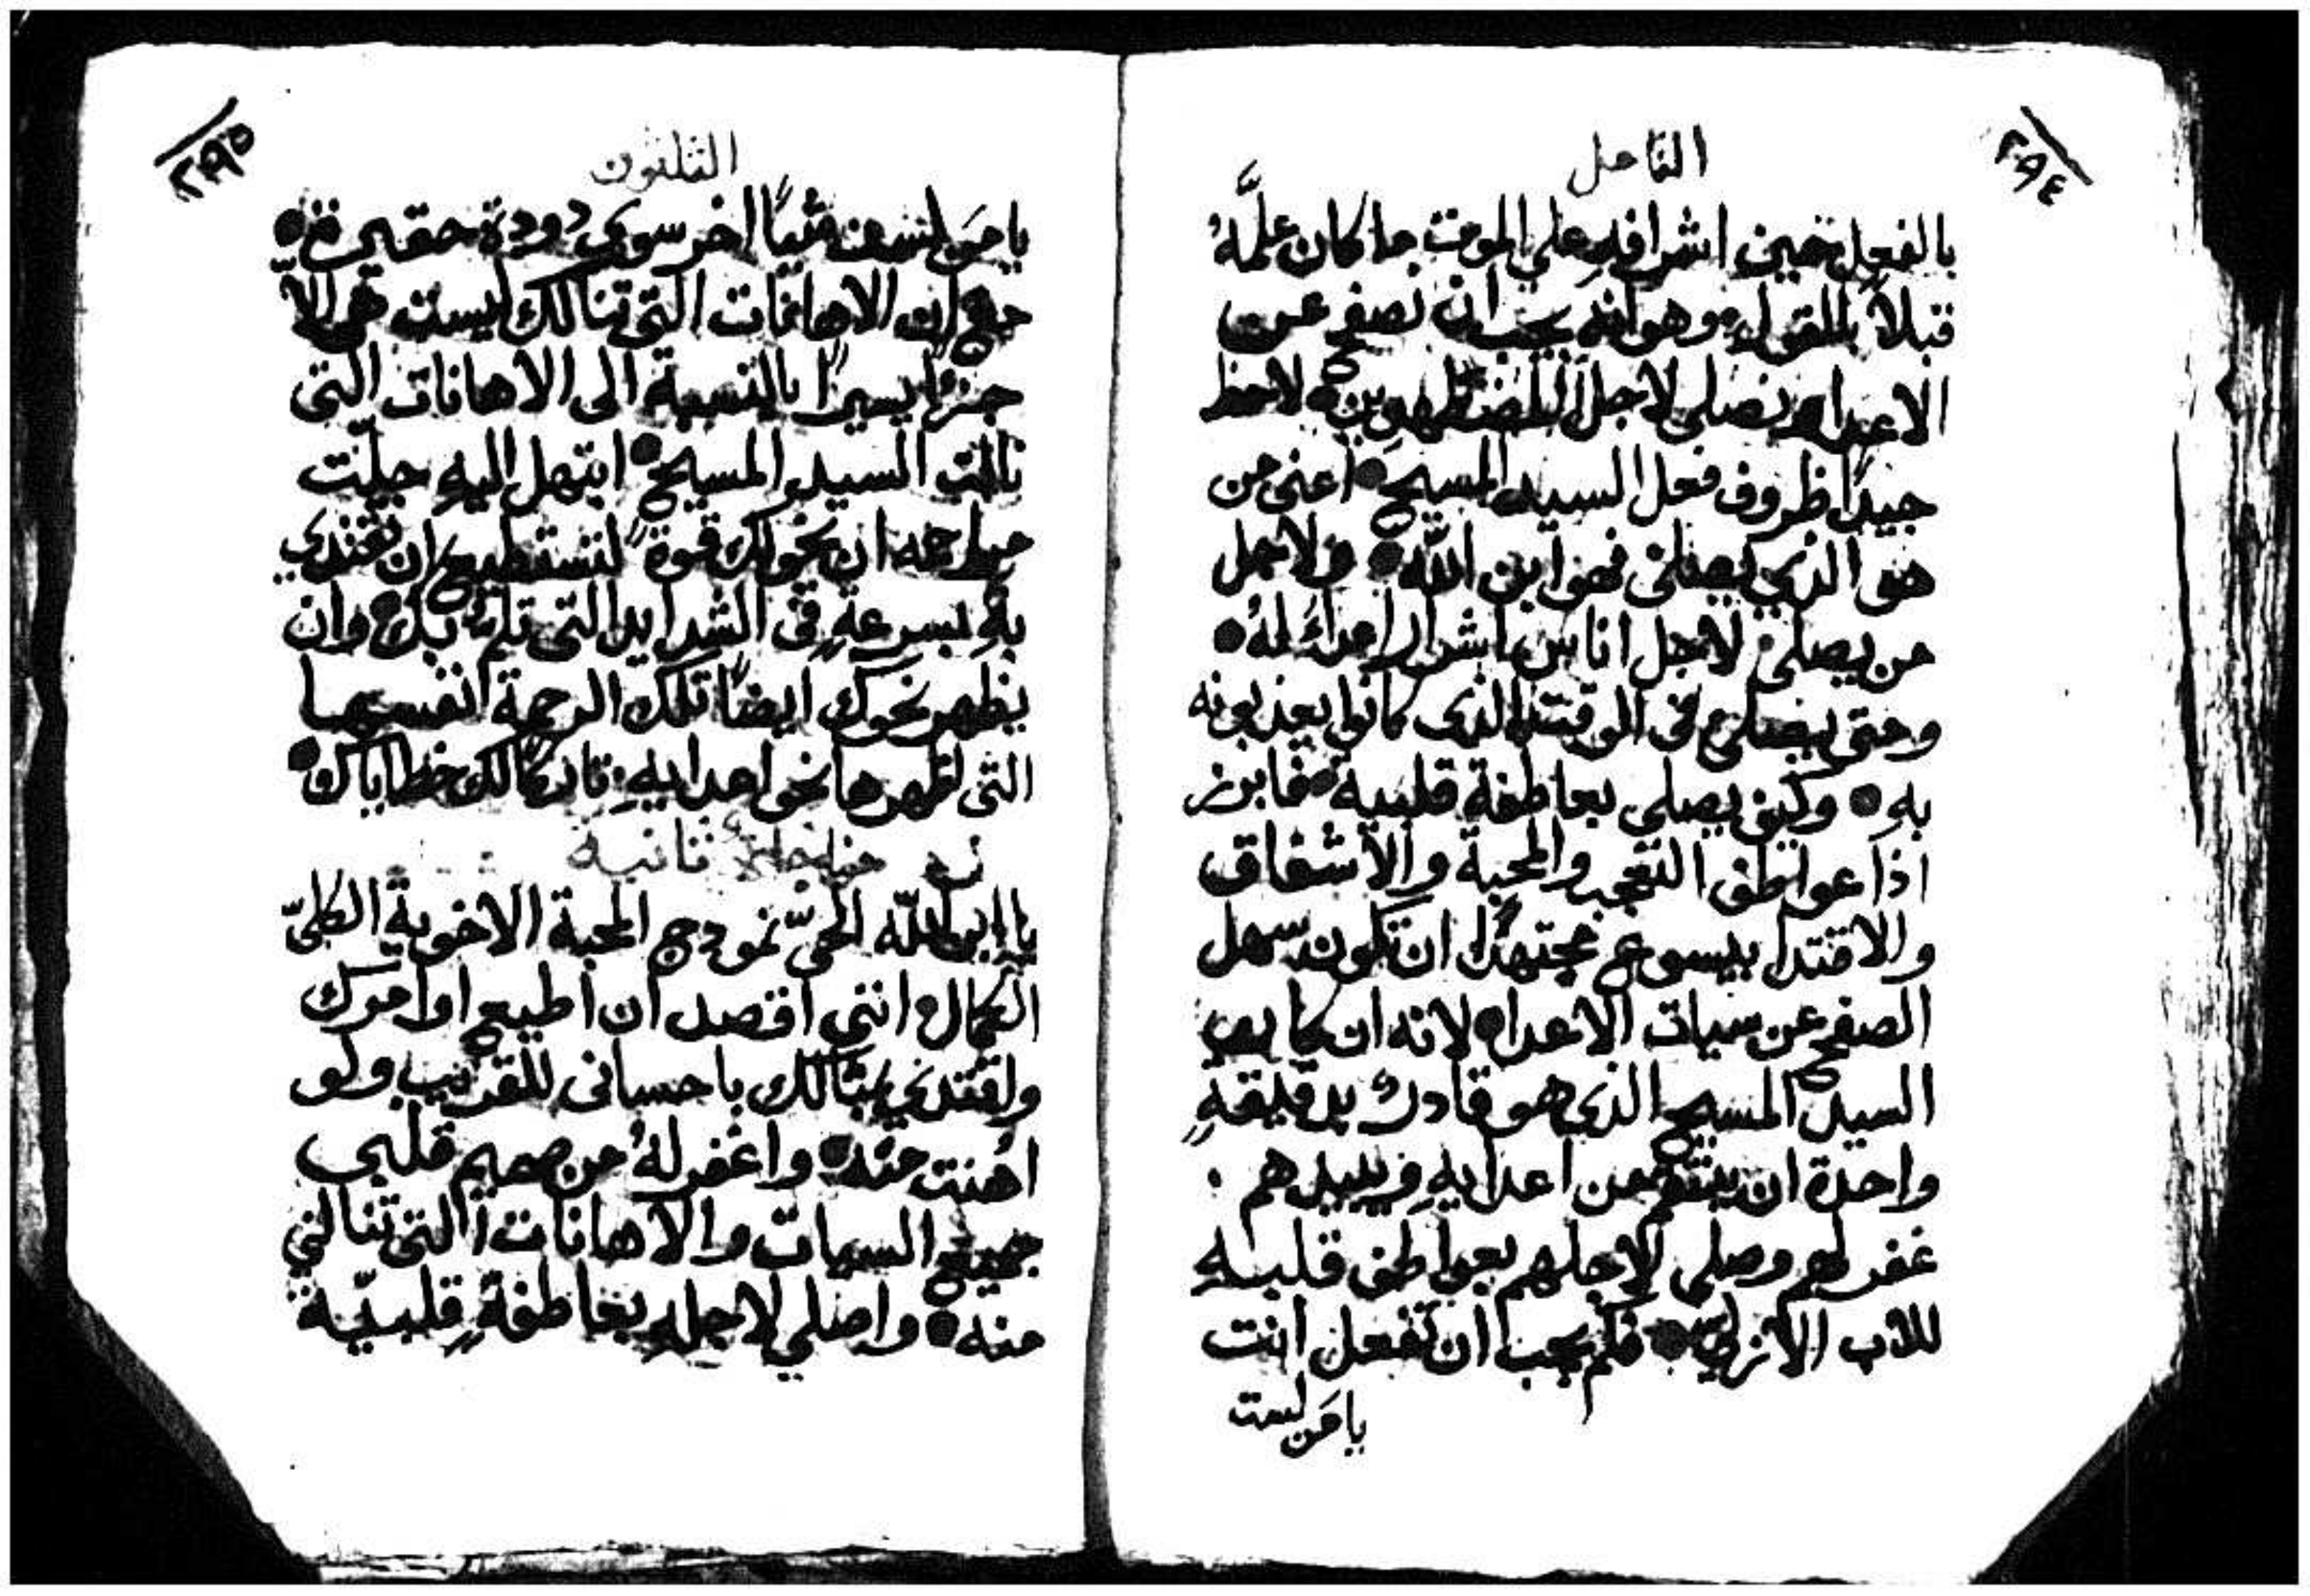 ٢٩٤
التامل
بالفعل حين اشرافه علي الموت ما كان علَّمهُ
قبلاً بالقول وهو انه يجب ان نصفح عن
الاعدا ونصلي لاجل المضطهدين لاحظ
جيداً ظروف فعل السيد المسيح اعني من
هو الذي يصلي فهو ابن اللّه ولاجل
من يصلي لاجل اناس اشرار اعداءً لهُ
وحتي يصلي في الوقت الذي كانوا يعذبونه
به وكيف يصلي بعاطفة قلبية فابرز
اذاً عواطف التعجب والمحبة والاشفاق
والاقتدا بيسوع مجتهداً ان تكون سهل
الصفح عن سيات الاعدا لانه ان كان
السيد المسيح الذي هو قادرٌ بدقيقةٍ
واحدة ان ينتقم من اعدايهِ ويبيدهم
غفر لهم وصلي لاجلهم بعواطف قلبيه
للاب الازلي فكم يجب ان تفعل انت
يا مَن لست
٢٩٥
الثلثون
يا مَن لست شياً اخر سوي دودة حقيرة
مع ان الاهانات التي تنالك ليست هي الّا
جزءًا يسيراً بالنسبة الي الاهانات التي
نالت السيد المسيح ابتهل اليهِ جلّت
مراحمه ان يخولك قوة لتستطيع ان تقتدي
بهِ بسرعةٍ في الشدايد التي تلمّ بك وان
يظهر نحوك ايضاً تلك الرحمة نفسها
التي اظهرها نحو اعدايهِ تاركاً لك خطاياك
مناجاة ثانية
يا ابن اللّه الحيّ نموذج المحبة الاخوية الكليّ
الكمال انني اقصد ان اطيع اوامرك
واقتدي بمثالك باحساني للقريب ولو
اُهنت منه واغفر لهُ من صميم قلبي
جميع السيات والاهانات التي تنالني
منه واصلي لاجله بعاطفةٍ قلبيّة